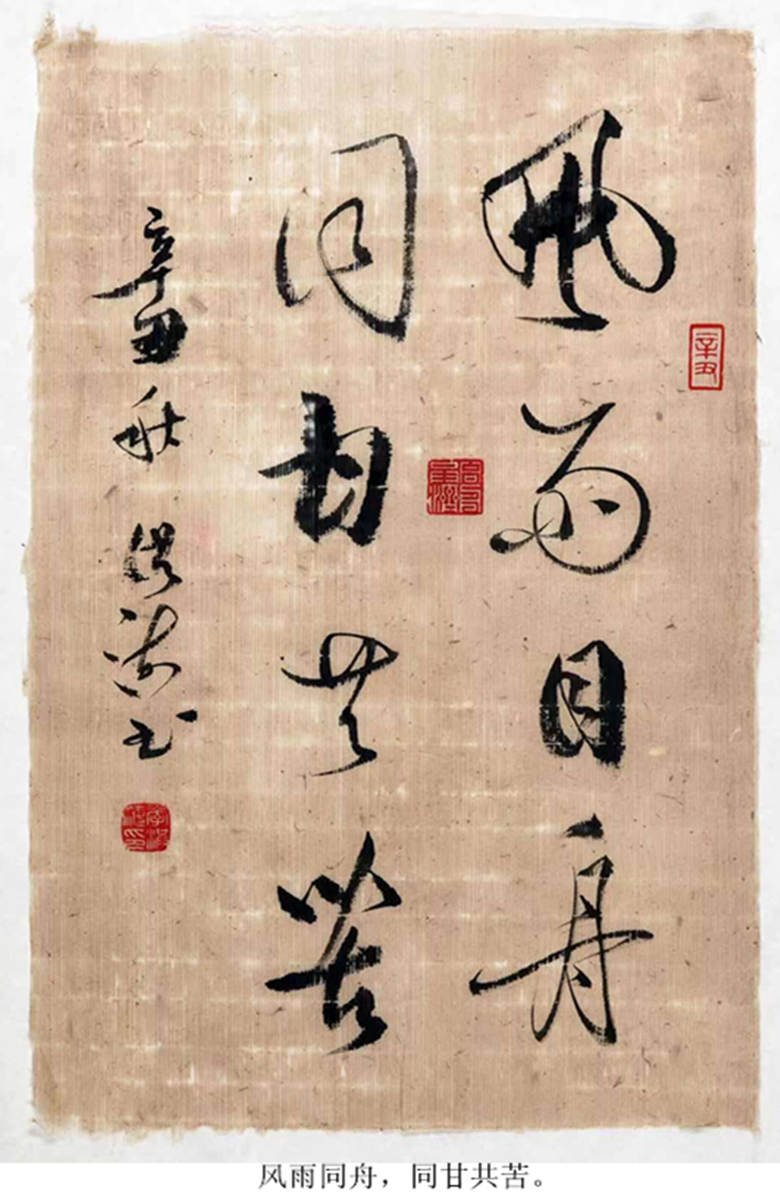 風雨同舟
同甘共苦
辛丑秋
书
辛丑
风雨同舟，同甘共苦。